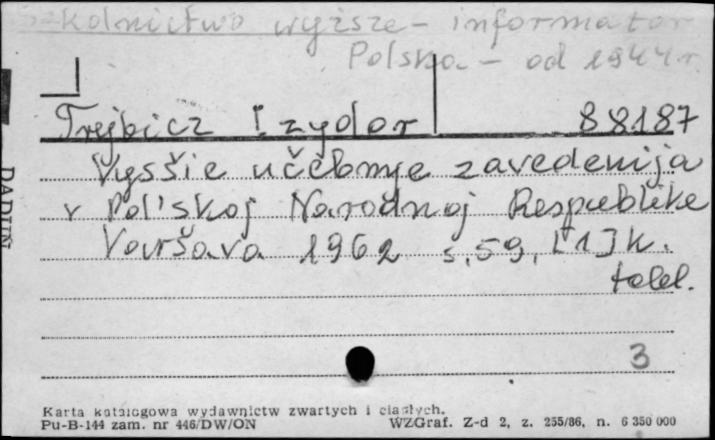 Szkolnictwo wyższe - informator
Polska - od 1944 r.
Trejbicz Izydor 88187
Vysšie učebnye zavedenija
v Pol'skoj Narodnoj Respublike
Varšava 1962 s. 59, [1] k.
tabl.
3
Karta katalogowa wydawnictw zwartych i ciągłych.
Pu-B-144 zam. nr 446/DW/ON WZGraf. Z-d 2, z. 255/86, n. 6 350 000